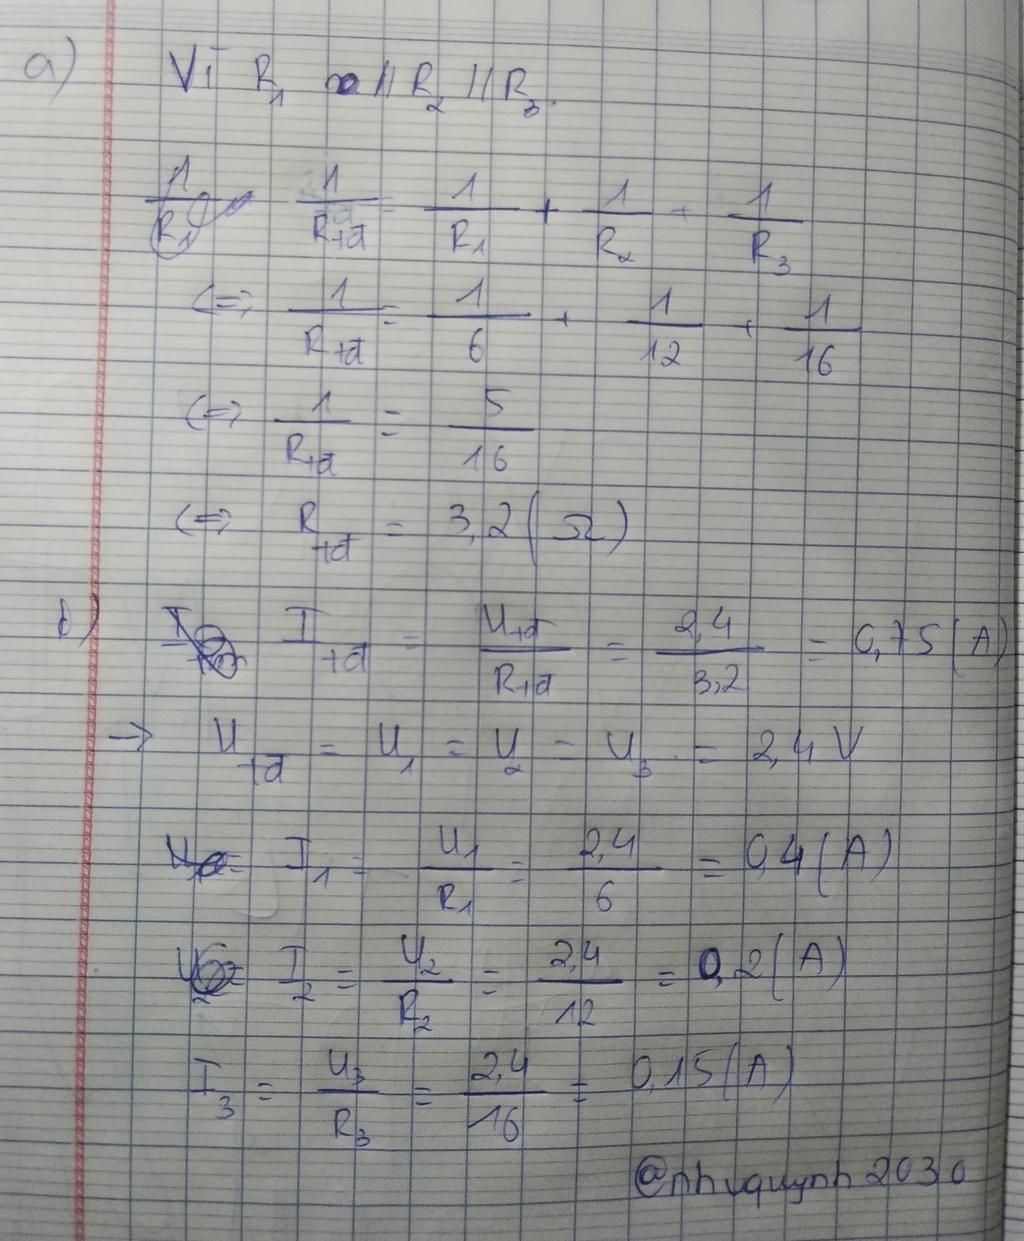 a) Vì R₁ // R₂ // R₃.
1/Rtđ = 1/R₁ + 1/R₂ + 1/R₃
(=) 1/Rtđ = 1/6 + 1/12 + 1/16
(=) 1/Rtđ = 5/16
(=) Rtđ = 3,2 (Ω)
b) Itđ = Utđ/Rtđ = 2,4/3,2 = 0,75 (A)
→ Utđ = U₁ = U₂ = U₃ = 2,4 V
I₁ = U₁/R₁ = 2,4/6 = 0,4 (A)
I₂ = U₂/R₂ = 2,4/12 = 0,2 (A)
I₃ = U₃/R₃ = 2,4/16 = 0,15 (A)
@nhuquynh2030